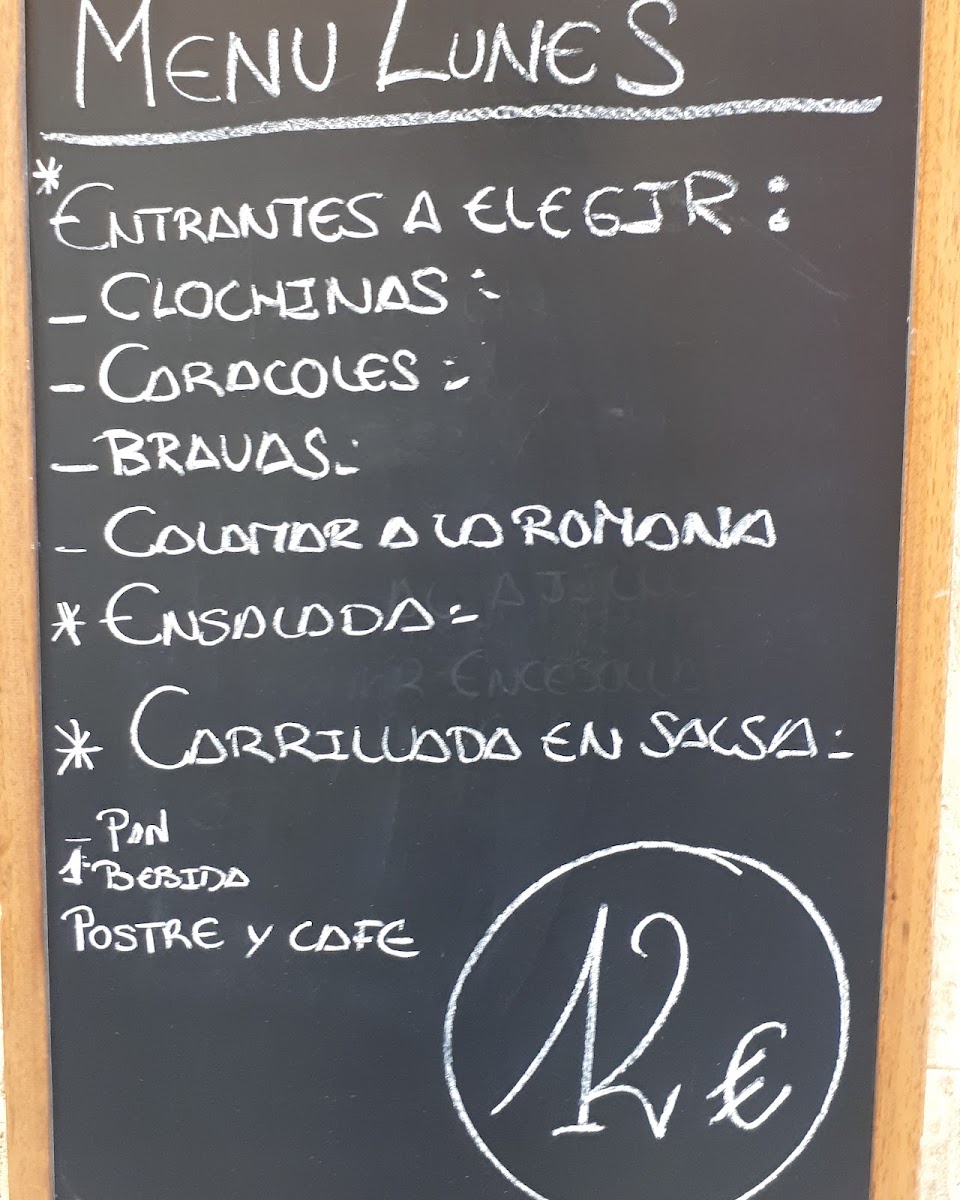 MENU LUNES
* ENTRANTES A ELEGIR:
- CLOCHINAS:-
- CARACOLES:-
- BRAVAS:-
- CALAMAR A LA ROMANA
* ENSALADA:-
* CARRILLADA EN SALSA:-
- PAN
1 BEBIDA
POSTRE Y CAFE
12 €